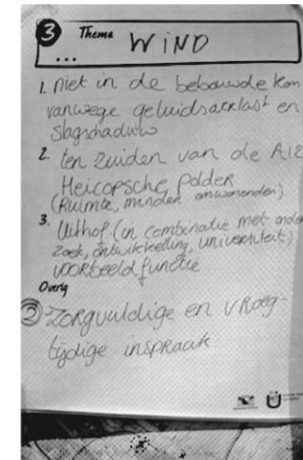 3 Thema WIND
...
1. niet in de bebouwde kom
vanwege geluidsoverlast en
slagschaduw
2. ten zuiden van de A12
Heicopsche Polder
(Ruimte, minder omwonenden)
3. Uithof (in combinatie met onder
zoek, ontwikkeling, universiteit)
voorbeeld functie
Overig
2 Zorgvuldige en vroeg-
tijdige inspraak